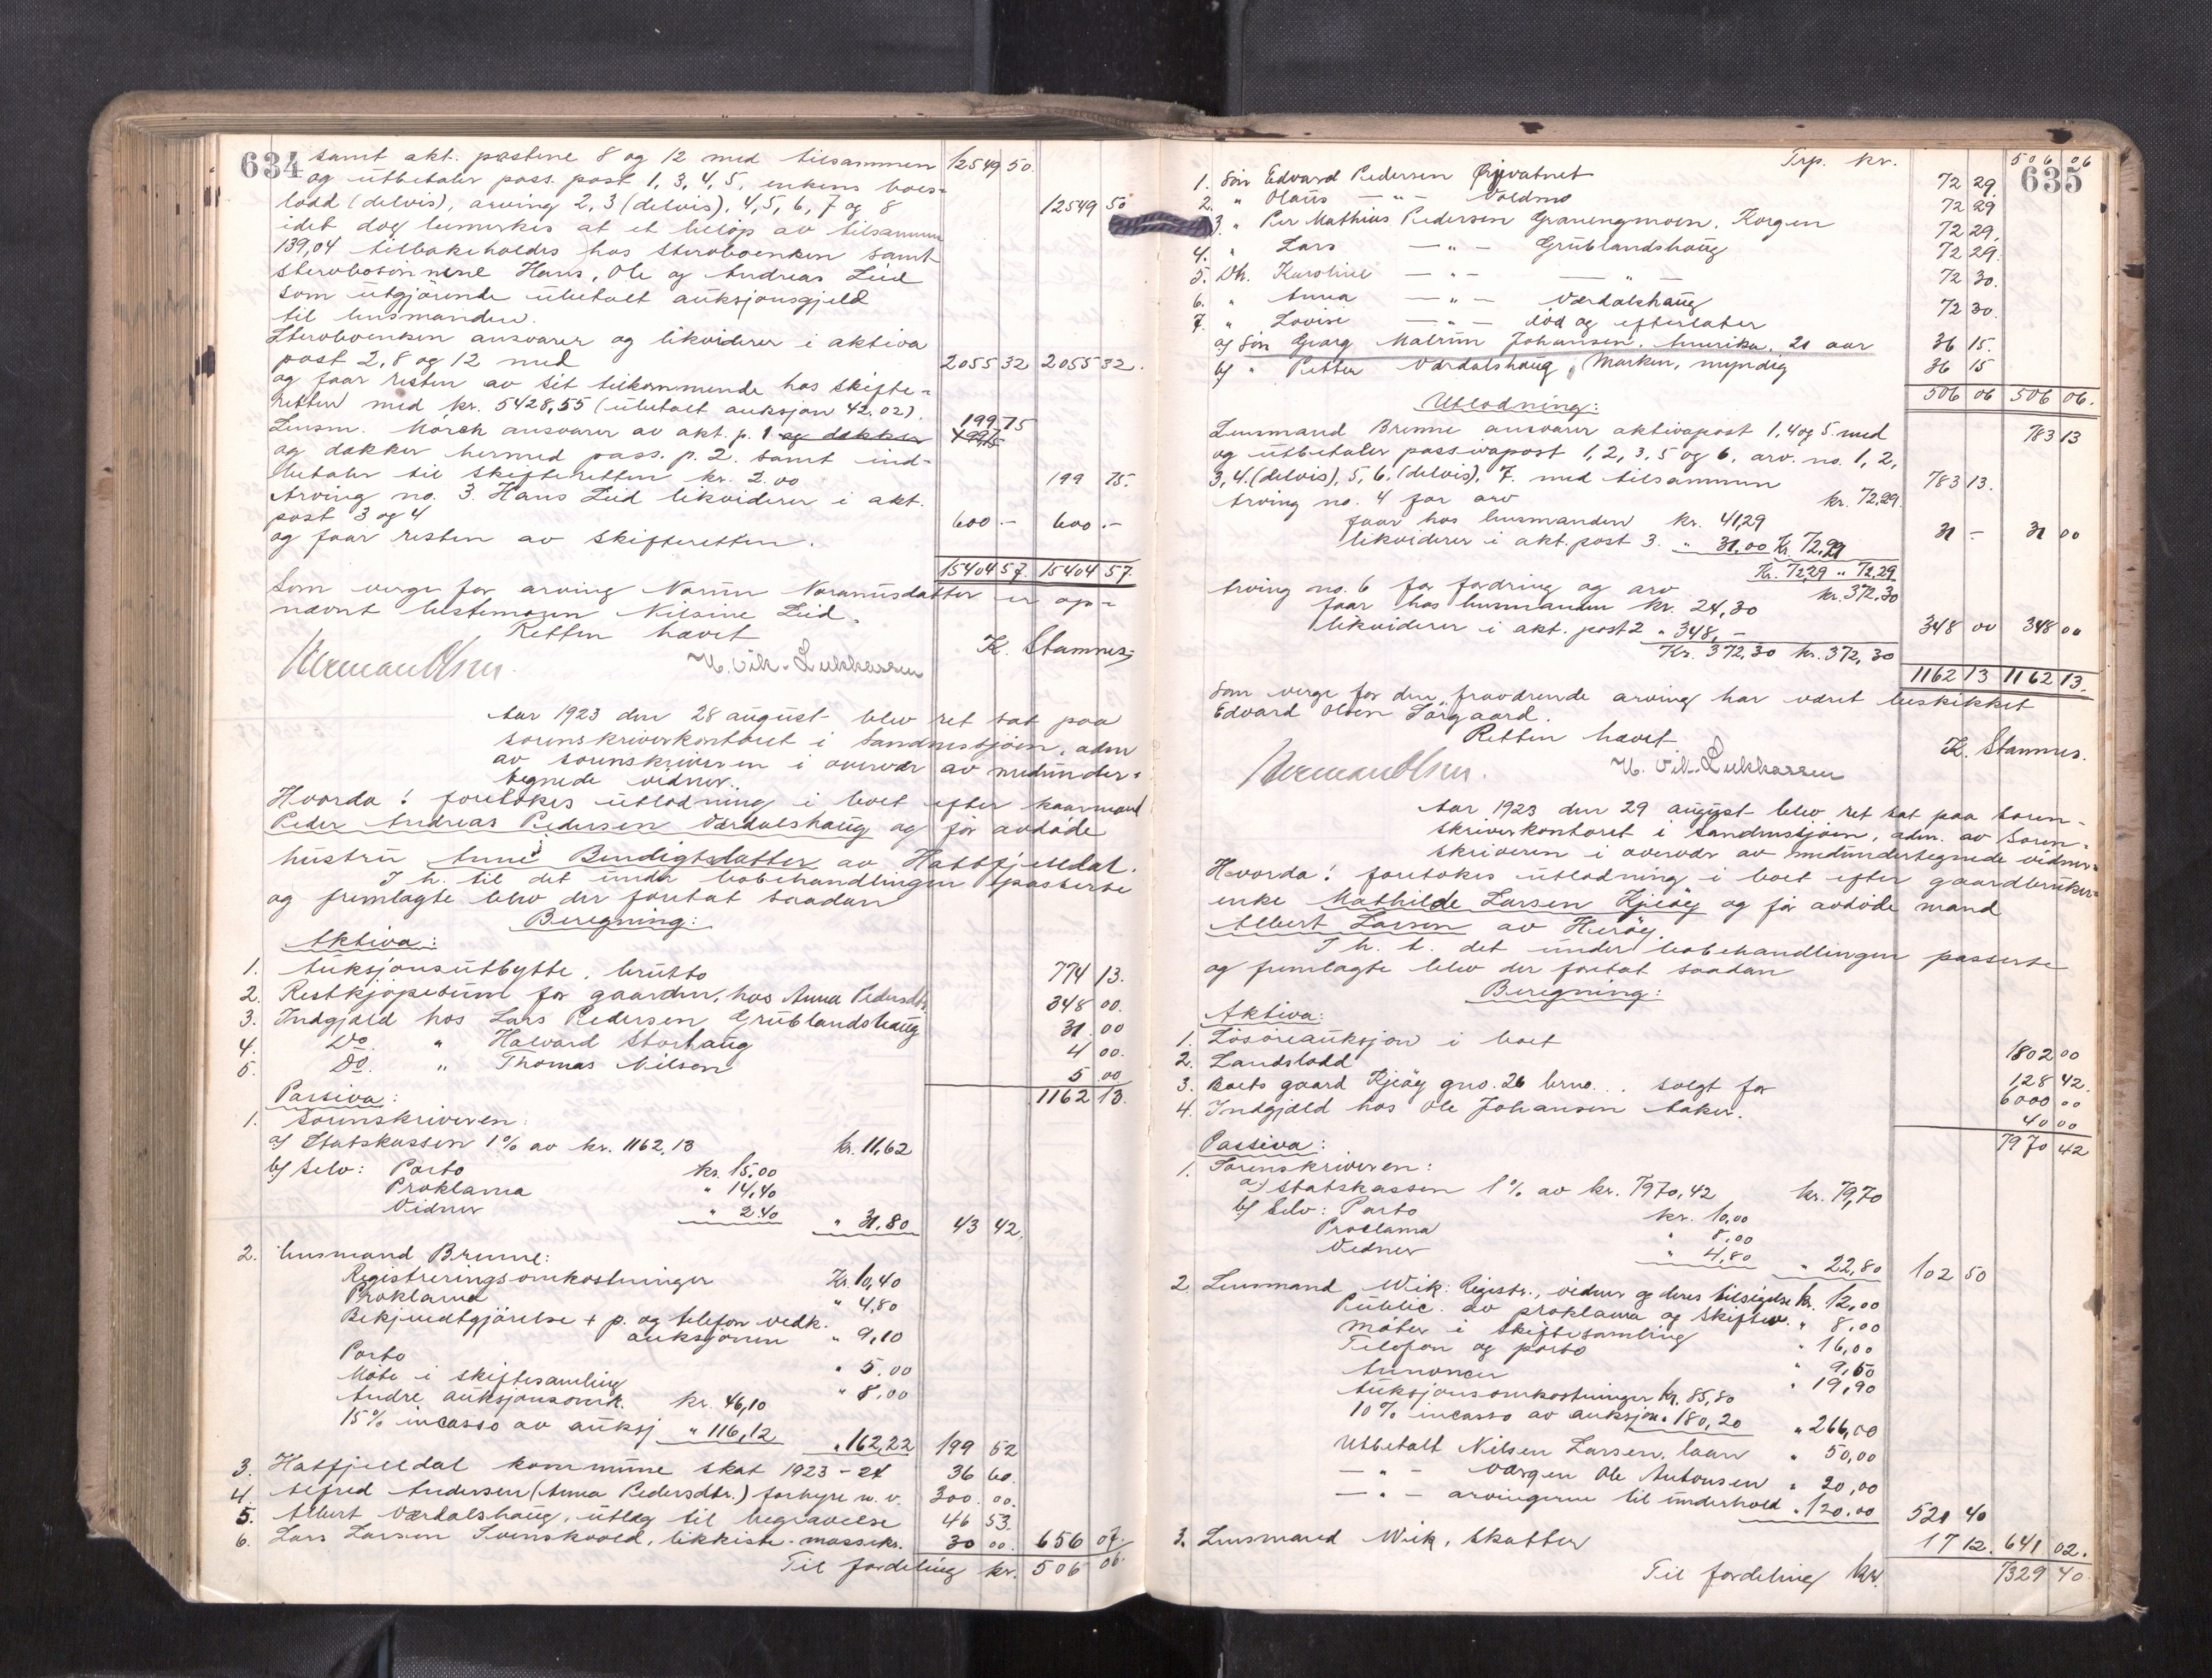 634
samt akt. postene 8 og 12 med tilsammen 12549 50.
og utbetaler pass. post 1, 3, 4, 5, enkens boes-
lodd (delvis), arving 2, 3 (delvis), 4, 5, 6, 7 og 8 12549 50
idet dog bemerkes at et beløp av tilsammen
139,04 tilbakeholdes hos sterboenken samt
sterbosønnene Hans, Ole og Andreas Lied
som utgjørende ubetalt auksjonsgjeld
til lensmanden.
Sterboenken ansvarer og likviderer i aktiva
post 2, 8 og 12 med 2055 32 2055 32.
og faar resten av sit tilkommende hos skifte-
retten med kr. 5428,55 (ubetalt auksjon 42.02).
Lensm. Mörch ansvarer av akt. p. 1 og dekker 199 75
og dækker hermed pass. p. 2. samt ind-
betaler til skifteretten kr. 2.00 199 75.
Arving no. 3. Hans Lied likviderer i akt.
post 3 og 4 600 .- 600 .-
og faar resten av skifteretten.
15404 57. 15404 57.
Som verge for arving Narün Naraniisdatter er op-
nævnt bestemoren Nilsine Lied.
Retten hævet
Herman Olsen. U. Vik-Lukkassen K. Stamnes
Aar 1923 den 28 august blev ret sat paa
sorenskriverkontoret i Sandnessjøen, adm
av sorenskriveren i overvær av medunder-
tegnede vidner.
Hvorda! foretokes utlodning i boet efter kaarmand
Peder Andreas Pedersen Værdalshaug og før avdøde
hustru Anne Bendigtsdatter av Hatfjelldal.
I h. til det under bobehandlingen passerte
og fremlagte blev der foretat saadan
Beregning:
Aktiva:
1. Auksjonsutbytte, brutto 774 13.
2. Restkjøpesum for gaarden, hos Anna Pedersdtr. 348 00.
3. Indgjæld hos Lars Pedersen Grublandshaug 31 00
4. Do. " Halvard Storhaug 4 00.
5. Do. " Thomas Nilsen 5 00
Passiva: 1162 13.
1. Sorenskriveren:
a) Statskassen 1% av kr. 1162,13 kr. 11,62
b) Selv: Porto kr. 15.00
Proklama " 14,40
Vidner " 2.40 " 31,80 43 42.
2. Lensmand Brenne:
Registreringsomkostninger Kr. 10,40
Proklama " 4,80
Bekjendtgjørelse + p. og telefon vedk.
auksjonen " 9,10
Porto " 5.00
Møte i skiftesamling " 8,00
Andre auksjonsomk. kr. 46,10
15% incasso av auksj " 116,12 " 162,22 199 52
3. Hatfjelldal kommune skat 1923-24 36 60.
4. Alfred Andersen (Anna Pedersdtr.) forhyre m.v. 300. 00.
5. Albert Værdalshaug, utlæg til begravelse 46 53.
6. Lars Larsen Svenskvold, likkiste m.assekr. 30 00. 656 07.
Til fordeling kr. 506 06.
635
Trp. kr. 506 06
1. Søn Edvard Pedersen Ørjevatnet 72 29
2. " Olaus —"— Voldmo 72 29
3. " Per Mathias Pedersen Granengmoen, Korgen 72 29.
4. " Lars —"— Grublandshaug 72 29.
5. Dt. Karoline —"— —"— 72 30.
6. " Anna —"— Værdalshaug 72 30.
7. " Lovise —"— død og efterlater
a) Søn Georg Matrün Johansen, Amerika, 21 aar 36 15.
b) " Petter Værdalshaug, Marken, myndig 36 15
506 06 506 06.
Utlodning:
Lensmand Brenne ansvarer aktivapost 1, 4 og 5 med 783 13
og utbetaler passivapost 1, 2, 3, 5 og 6, arv. no. 1, 2,
3, 4. (delvis), 5, 6, (delvis), 7. med tilsammen 783 13.
Arving no. 4 for arv kr. 72,29.
faar hos lensmanden kr. 41,29
likviderer i akt. post 3. " 31,00 Kr. 72,29 31 - 31 00
Kr. 72,29 " 72,29
Arving no. 6 for fordring og arv kr. 372,30
faar hos lensmannen kr. 24,30
likviderer i akt. post 2 " 348,- 348 00 348 00
Kr. 372,30 kr. 372,30
1162 13 1162 13.
Som verge for den fraværende arving har været beskikket
Edvard Olsen Sørgaard.
Retten hævet
Herman Olsen. U. Vik-Lukkassen K. Stamnes.
Aar 1923 den 29 august blev ret sat paa soren-
skriverkontoret i Sandnessjøen, adm. av Soren-
skriveren i overvær av medundertegnede vidner.
Hvorda! foretokes utlodning i boet efter gaardbruker-
enke Mathilde Larsen Kjeøy og før avdøde mand
Albert Larsen av Herøy.
I h. t. det under bobehandlingen passerte
og fremlagte blev der foretat saadan
Beregning:
Aktiva:
1. Løsøreauksjon i boet 1802 00
2. Landslodd 128 42.
3. Boets gaard Kjeøy gno. 26 brno. .. solgt for 6000 00
4. Indgjæld hos Ole Johansen Aaker. 40 00
Passiva: 7970 42
1. Sorenskriveren:
a) Statskassen 1% av kr. 7970,42 kr. 79,70
b) Selv: Porto kr. 10,00
Proclama " 8,00
Vidner " 4,80 " 22,80 102 50
2. Lensmand Wik: Registr., vidner og deres tilsigelse kr. 12,00
Public. av proklama og skiftev. " 8,00
Møter i skiftesamling " 16,00
Telefon og porto " 9,50
Annoncer " 19,90
Auksjonsomkostninger kr. 85,80
10% incasso av auksjon " 180,20 " 266,00
Utbetalt Nilsen Larsen, laan " 50,00
—"— vergen Ole Antonsen " 20,00
—"— arvingerne til underhold " 120.00 521 40
3. Lensmand Wik, skatter 17 12. 641 02.
Til fordeling kr. 7329 40.